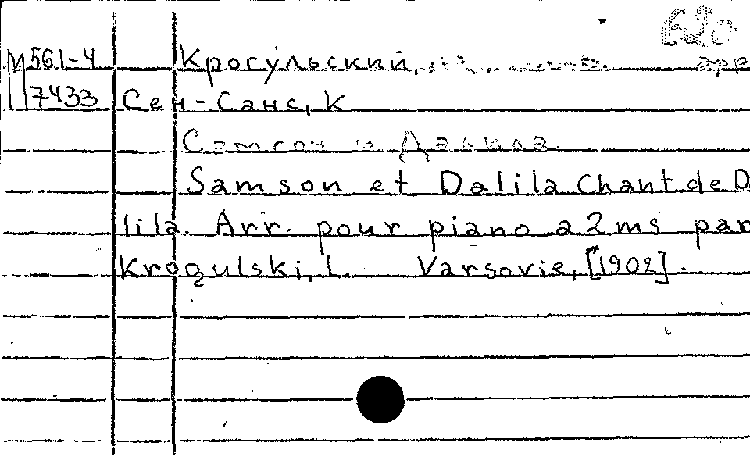 620
М561-4 Кросульский, арр
7433 Сен-Санс, К
Самсон и Далила
Samson et Dalila Chant de D
lila. Arr. pour piano a 2 ms par
Krogulski, L. Varsovie, [1902].